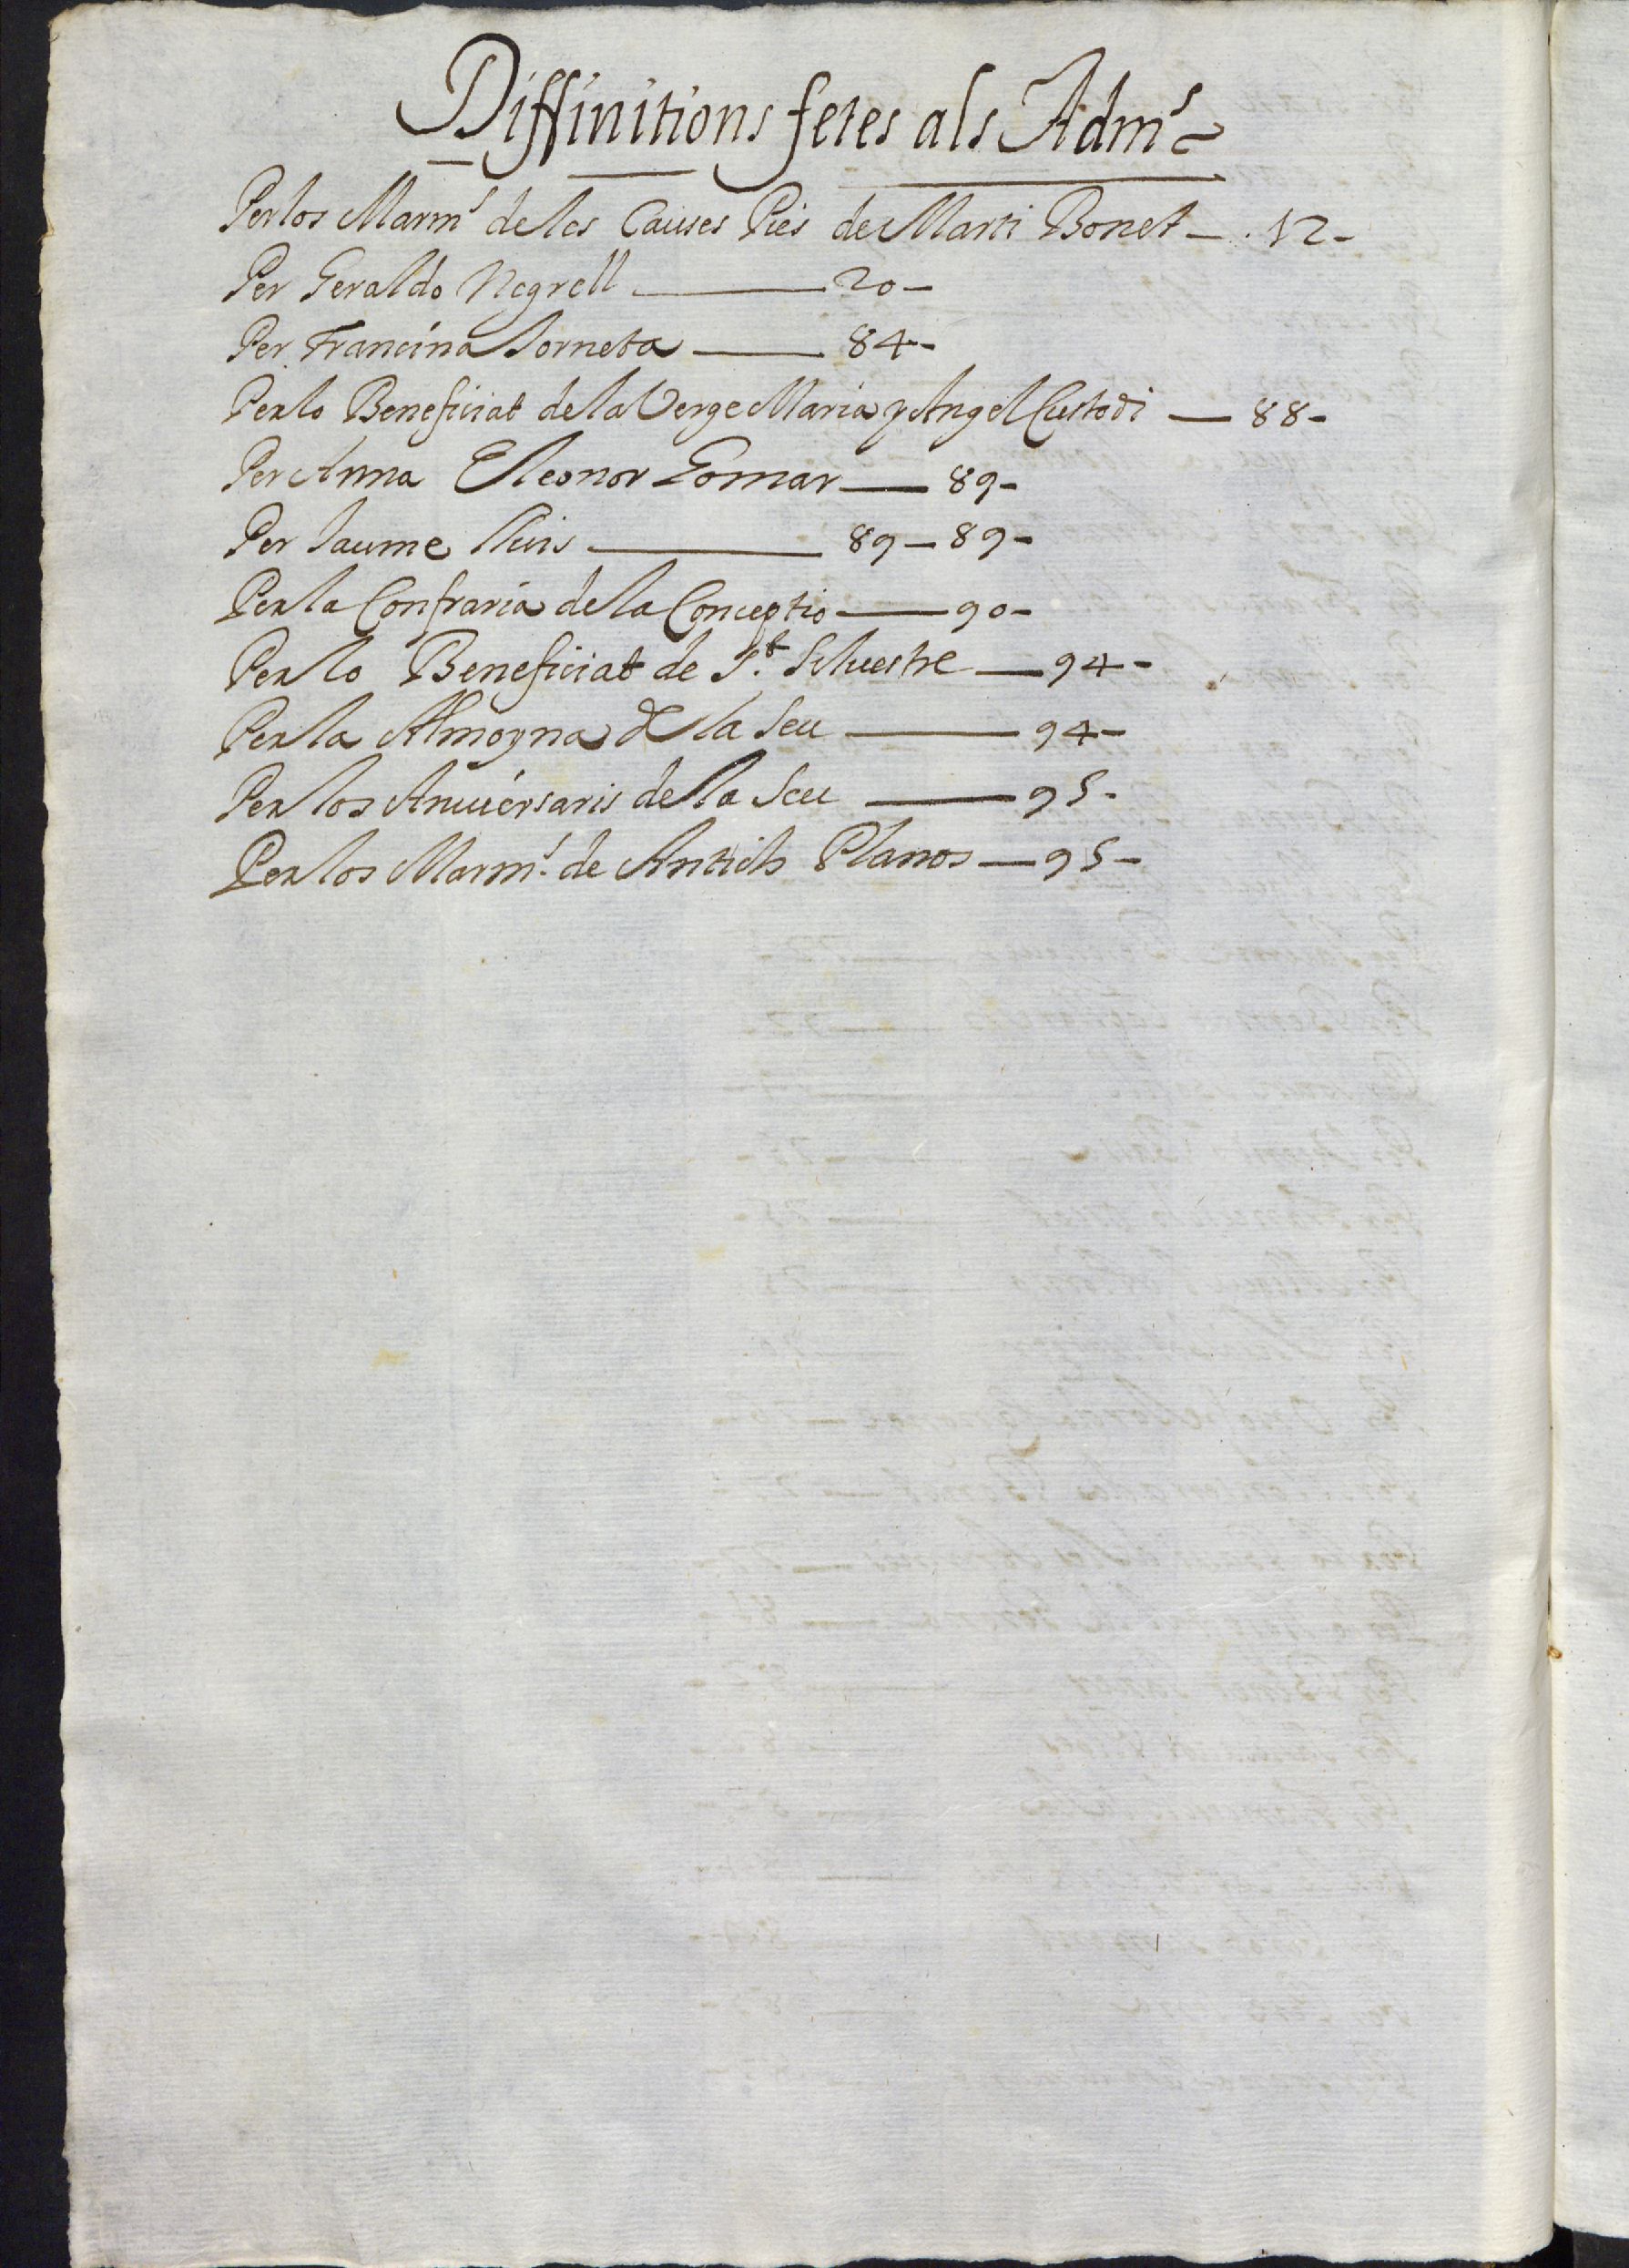 Diffinitions fetes als Adm.s
Per los Marm.s de les Causes Pies de Marti Bonet — . 12 -
Per Geraldo Negrell — 20 -
Per Francina Sorneta — 84 -
Per lo Beneficiat de la Verge Maria y Angel Custodi — 88 -
Per Anna Eleonor Gomar — 89 -
Per Jaume Lluis — 89 — 89 -
Per la Confraria de la Conceptio — 90 -
Per lo Beneficiat de S.t Silvestre — 94 -
Per la Almoyna de la Seu — 94 -
Per los Aniversaris de la Seu — 95 -
Per los Marm.s de Antich Planos — 95 -